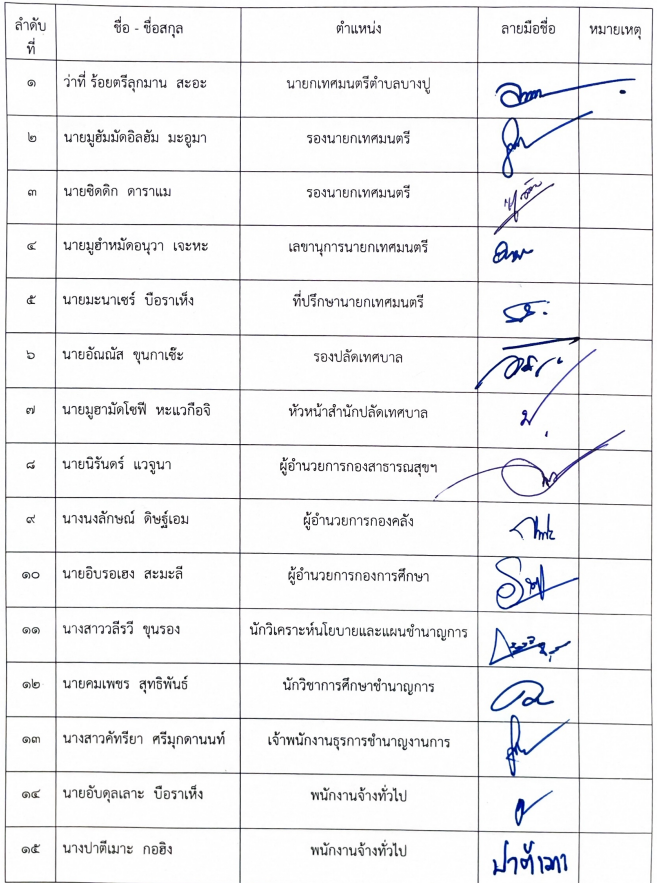 ลำดับที่ ชื่อ - ชื่อสกุล ตำแหน่ง ลายมือชื่อ หมายเหตุ
๑ ว่าที่ ร้อยตรีลุกมาน สะอะ นายกเทศมนตรีตำบลบางปู
๒ นายมูฮัมมัดอิลฮัม มะอูมา รองนายกเทศมนตรี
๓ นายซิดดิก ดาราแม รองนายกเทศมนตรี
๔ นายมูฮำหมัดอนุวา เจะหะ เลขานุการนายกเทศมนตรี
๕ นายมะนาเซร์ บือราเห็ง ที่ปรึกษานายกเทศมนตรี
๖ นายอัณณัส ขุนกาเซ๊ะ รองปลัดเทศบาล
๗ นายมูฮามัดโซฟี หะแวกือจิ หัวหน้าสำนักปลัดเทศบาล
๘ นายนิรันดร์ แวจูนา ผู้อำนวยการกองสาธารณสุขฯ
๙ นางนงลักษณ์ ดิษฐ์เอม ผู้อำนวยการกองคลัง
๑๐ นายอิบรอเฮง สะมะลี ผู้อำนวยการกองการศึกษา
๑๑ นางสาววลีรวี ขุนรอง นักวิเคราะห์นโยบายและแผนชำนาญการ
๑๒ นายคมเพชร สุทธิพันธ์ นักวิชาการศึกษาชำนาญการ
๑๓ นางสาวคัทรียา ศรีมุกดานนท์ เจ้าพนักงานธุรการชำนาญงานการ
๑๔ นายอับดุลเลาะ บือราเห็ง พนักงานจ้างทั่วไป
๑๕ นางปาตีเมาะ กอฮิง พนักงานจ้างทั่วไป